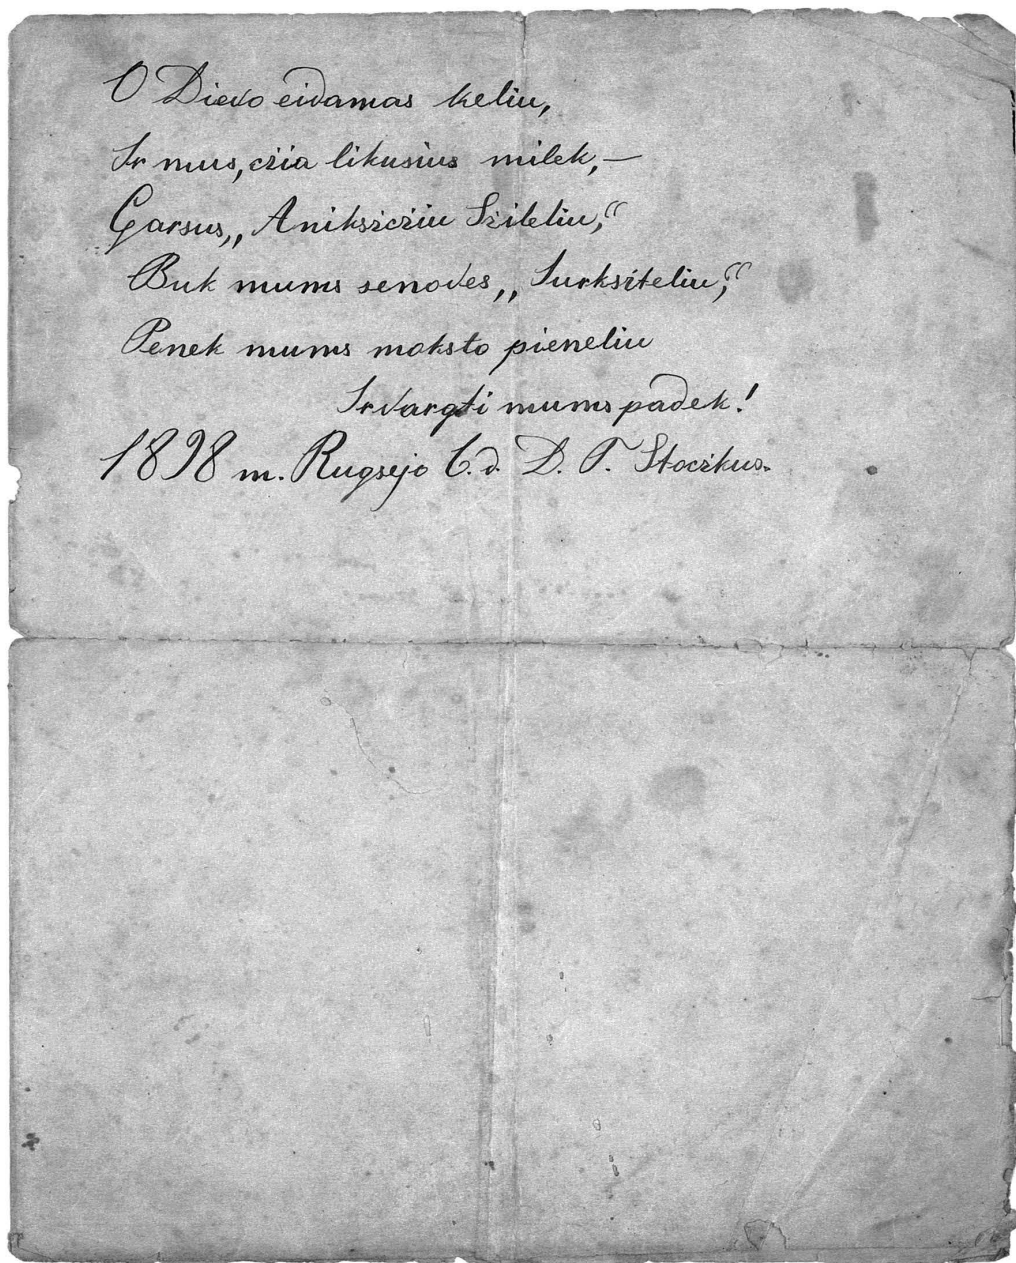 O Dievo eidamas keliu,
Ir mus, czia likusius milek, —
Garsus „Anikszcziu Szileliu,“
Buk mums senoves „Surkszteliu,“
Penek mums moksto pieneliu
Ir vargti mums padek!
1898 m. Rugsejo 6. d. D. T. Stoczkus.